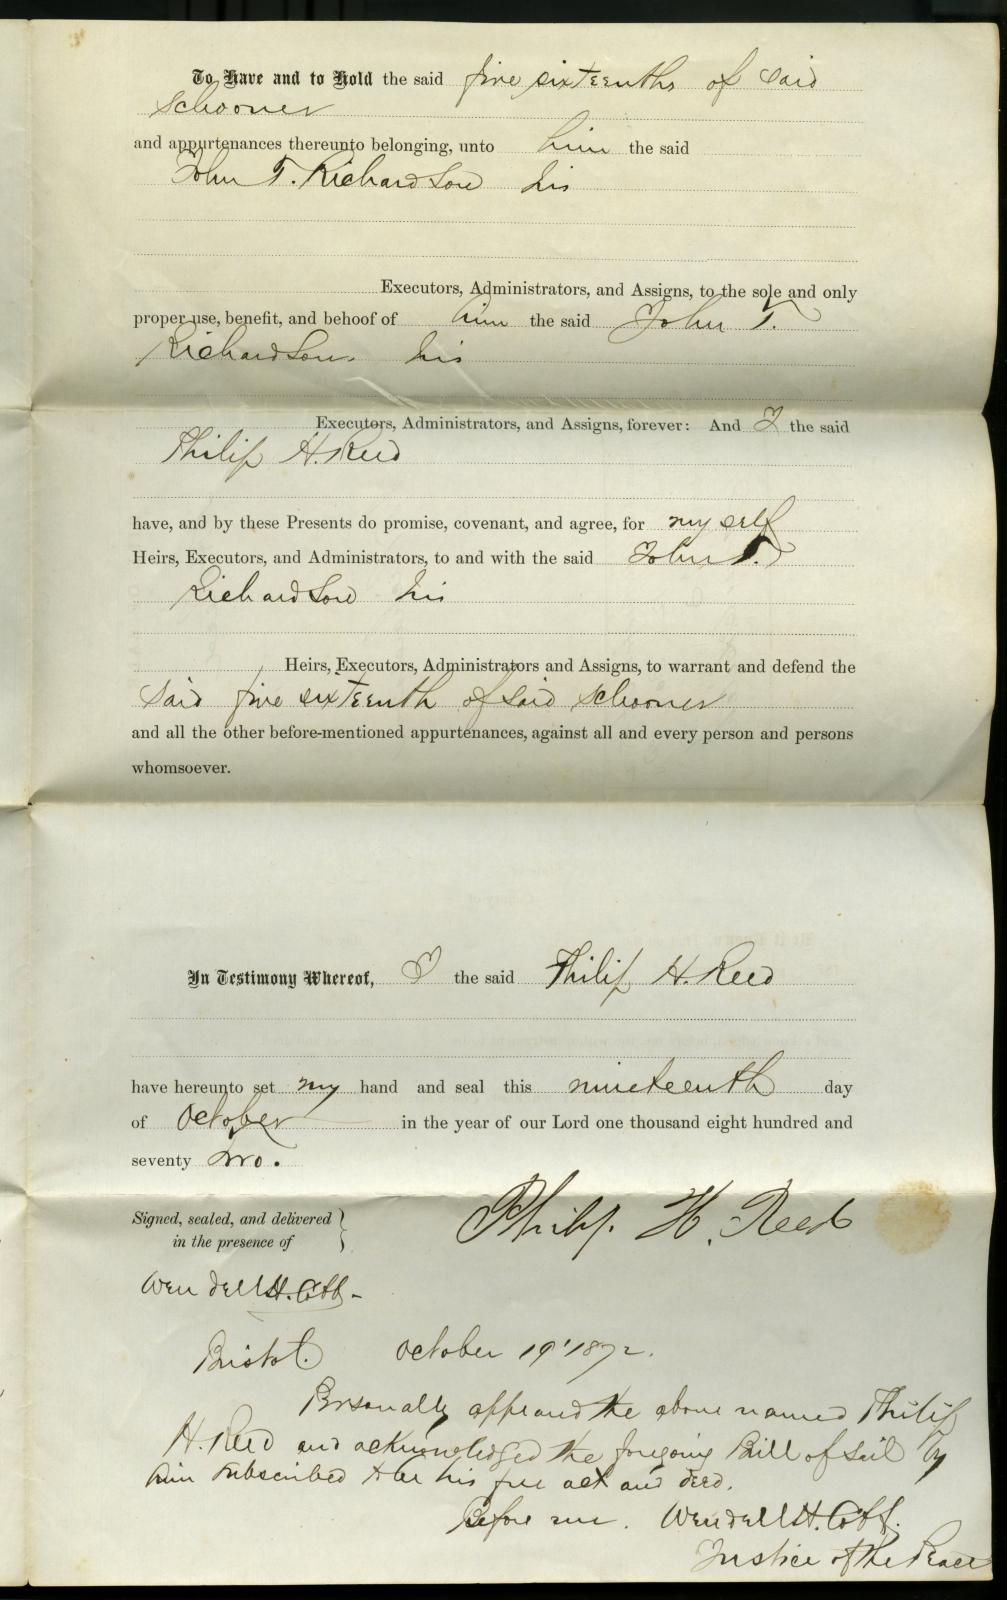 To Have and to Hold the said five sixteenths of said
schooner
and appurtenances thereunto belonging, unto him the said
John T. Richardson his
Executors, Administrators, and Assigns, to the sole and only
proper use, benefit, and behoof of him the said John T.
Richardson his
Executors, Administrators, and Assigns, forever: And I the said
Philip H. Reed
have, and by these Presents do promise, covenant, and agree, for my self
Heirs, Executors, and Administrators, to and with the said John T.
Richardson his
Heirs, Executors, Administrators and Assigns, to warrant and defend the
said five sixteenth of said schooner
and all the other before-mentioned appurtenances, against all and every person and persons
whomsoever.
In Testimony Whereof, I the said Philip H. Reed
have hereunto set my hand and seal this nineteenth day
of October in the year of our Lord one thousand eight hundred and
seventy two.
Signed, sealed, and delivered }
in the presence of
Philip. H. Reed
Wendell H. Cobb -
Bristol. October 19' 1872.
Personally appeared the above named Philip
H. Reed and acknowledged the foregoing Bill of Sail by
him subscribed to be his free act and deed.
Before me. Wendell H. Cobb.
Justice of the Peace